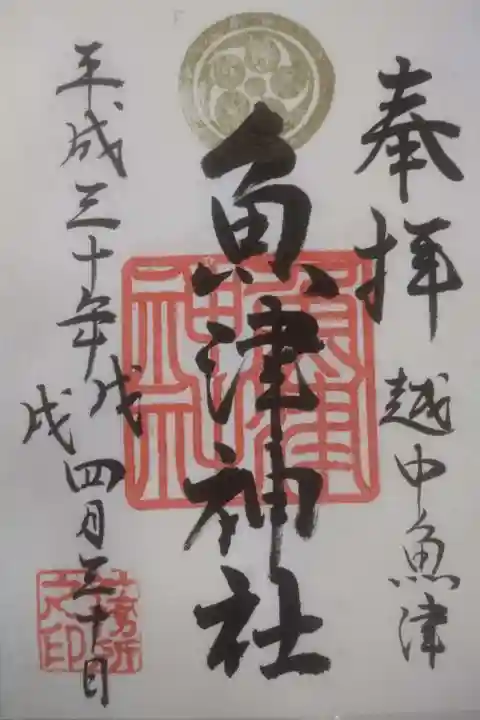 奉拝
越中魚津
魚津神社
魚津神社
平成三十年戊戌四月三十日
社務所之印